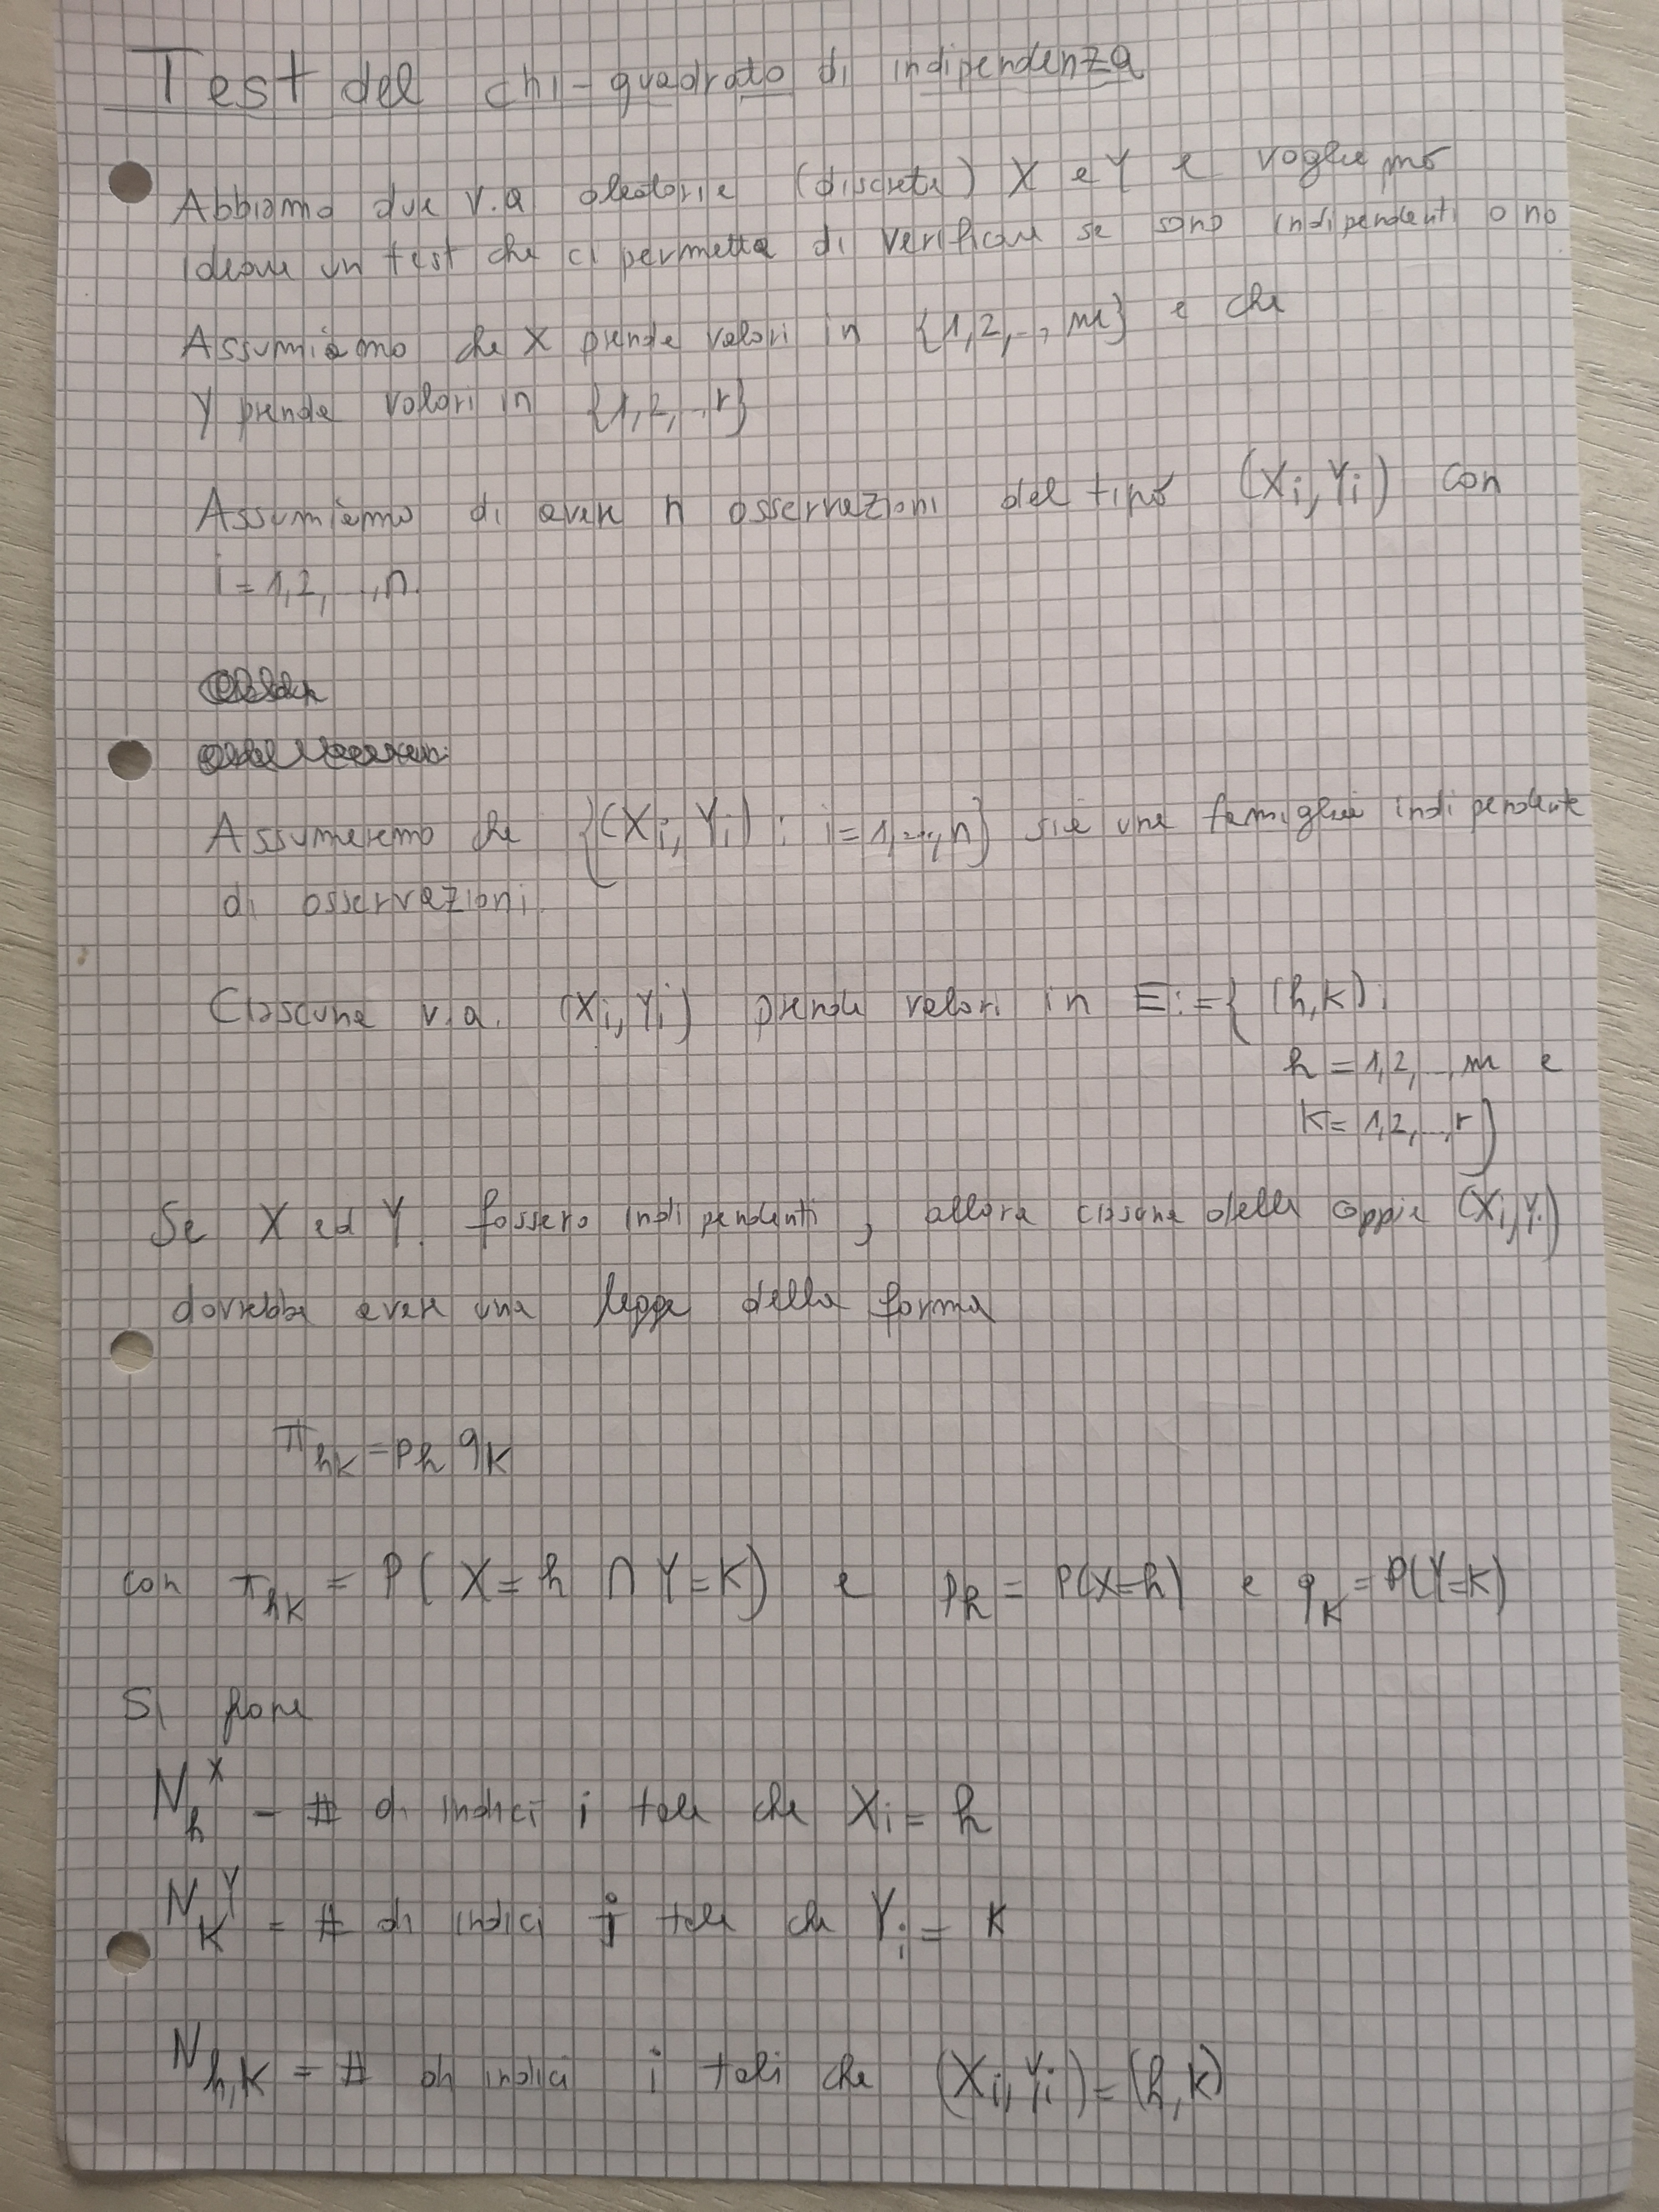 Test del chi-quadrato di indipendenza
Abbiamo due v.a aleatorie (discrete) X e Y e vogliamo
ideare un test che ci permetta di verificare se sono indipendenti o no
Assumiamo che X prende valori in {1,2,..,m} e che
Y prende valori in {1,2,..,r}
Assumiamo di avere n osservazioni del tipo (Xi,Yi) con
i=1,2,...,n.
Assumeremo che {(Xi,Yi): i=1,...,n} sia una famiglia indipendente
di osservazioni.
Ciascuna v.a. (Xi,Yi) prende valori in E:={(h,k):
h=1,2,...,m e
k=1,2,...,r}
Se X ed Y fossero indipendenti, allora ciascuna delle coppie (Xi,Yi)
dovrebbe avere una legge della forma
π_hk = p_h q_k
con π_hk = P(X=h ∩ Y=k) e p_h = P(X=h) e q_k = P(Y=k)
Si pone
N_h^X = # di indici i tale che Xi = h
N_k^Y = # di indici j tale che Yj = k
N_h,k = # di indici i tali che (Xi,Yi)=(h,k)